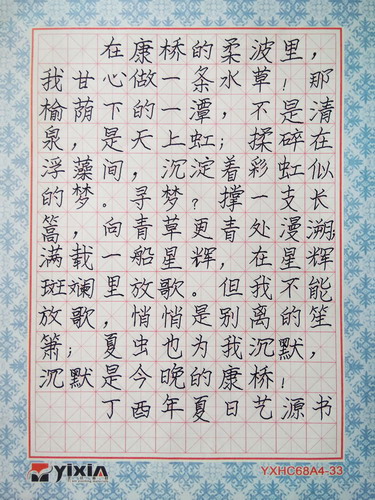 在康桥的柔波里，
我甘心做一条水草！那
榆荫下的一潭，不是清
泉，是天上虹；揉碎在
浮藻间，沉淀着彩虹似
的梦。寻梦？撑一支长
篙，向青草更青处漫溯，
满载一船星辉，在星辉
斑斓里放歌。但我不能
放歌，悄悄是别离的笙
箫；夏虫也为我沉默，
沉默是今晚的康桥！
丁酉年夏日艺源书
yixin
YXHC68A4-33